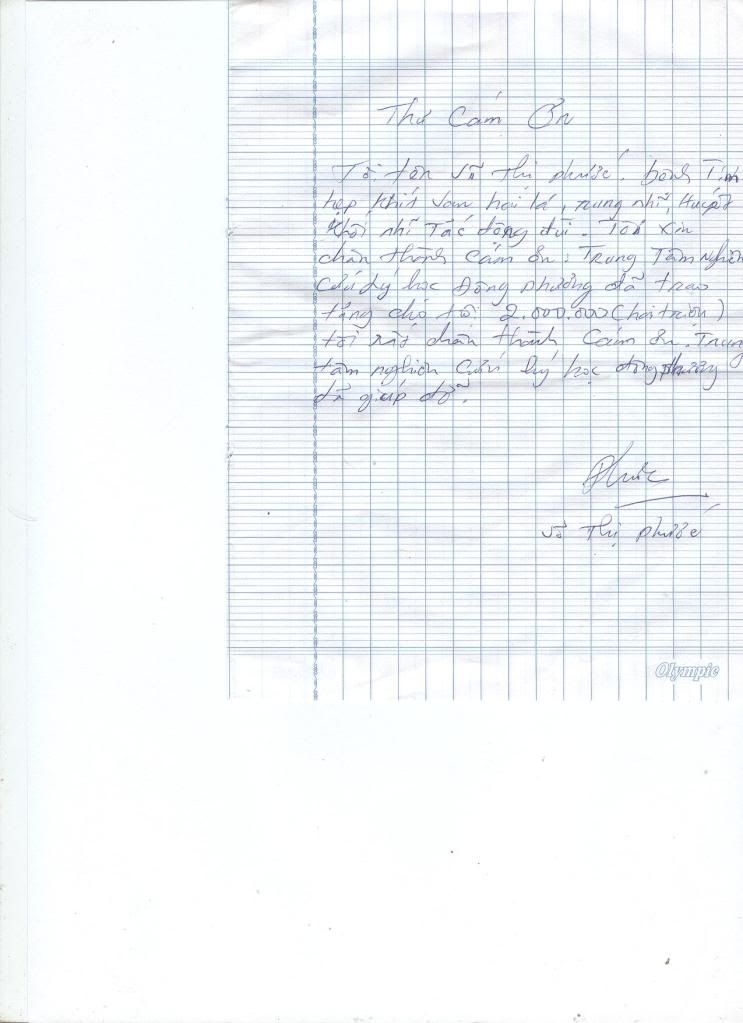 Thư Cám Ơn
Tôi tên Võ Thị Phước. bệnh Tim
hẹp khít van hai lá, rung nhĩ, Huyết
khối nhĩ Tắc động đùi. Tôi xin
chân thành Cám ơn: Trung Tâm Nghiên
Cứu Lý học Đông phương đã trao
tặng cho tôi 2.000.000 (hai triệu)
tôi rất chân thành Cám ơn. Trung
tâm nghiên cứu lý học đông phương
đã giúp đỡ.
Phước
Võ Thị Phước
Olympic